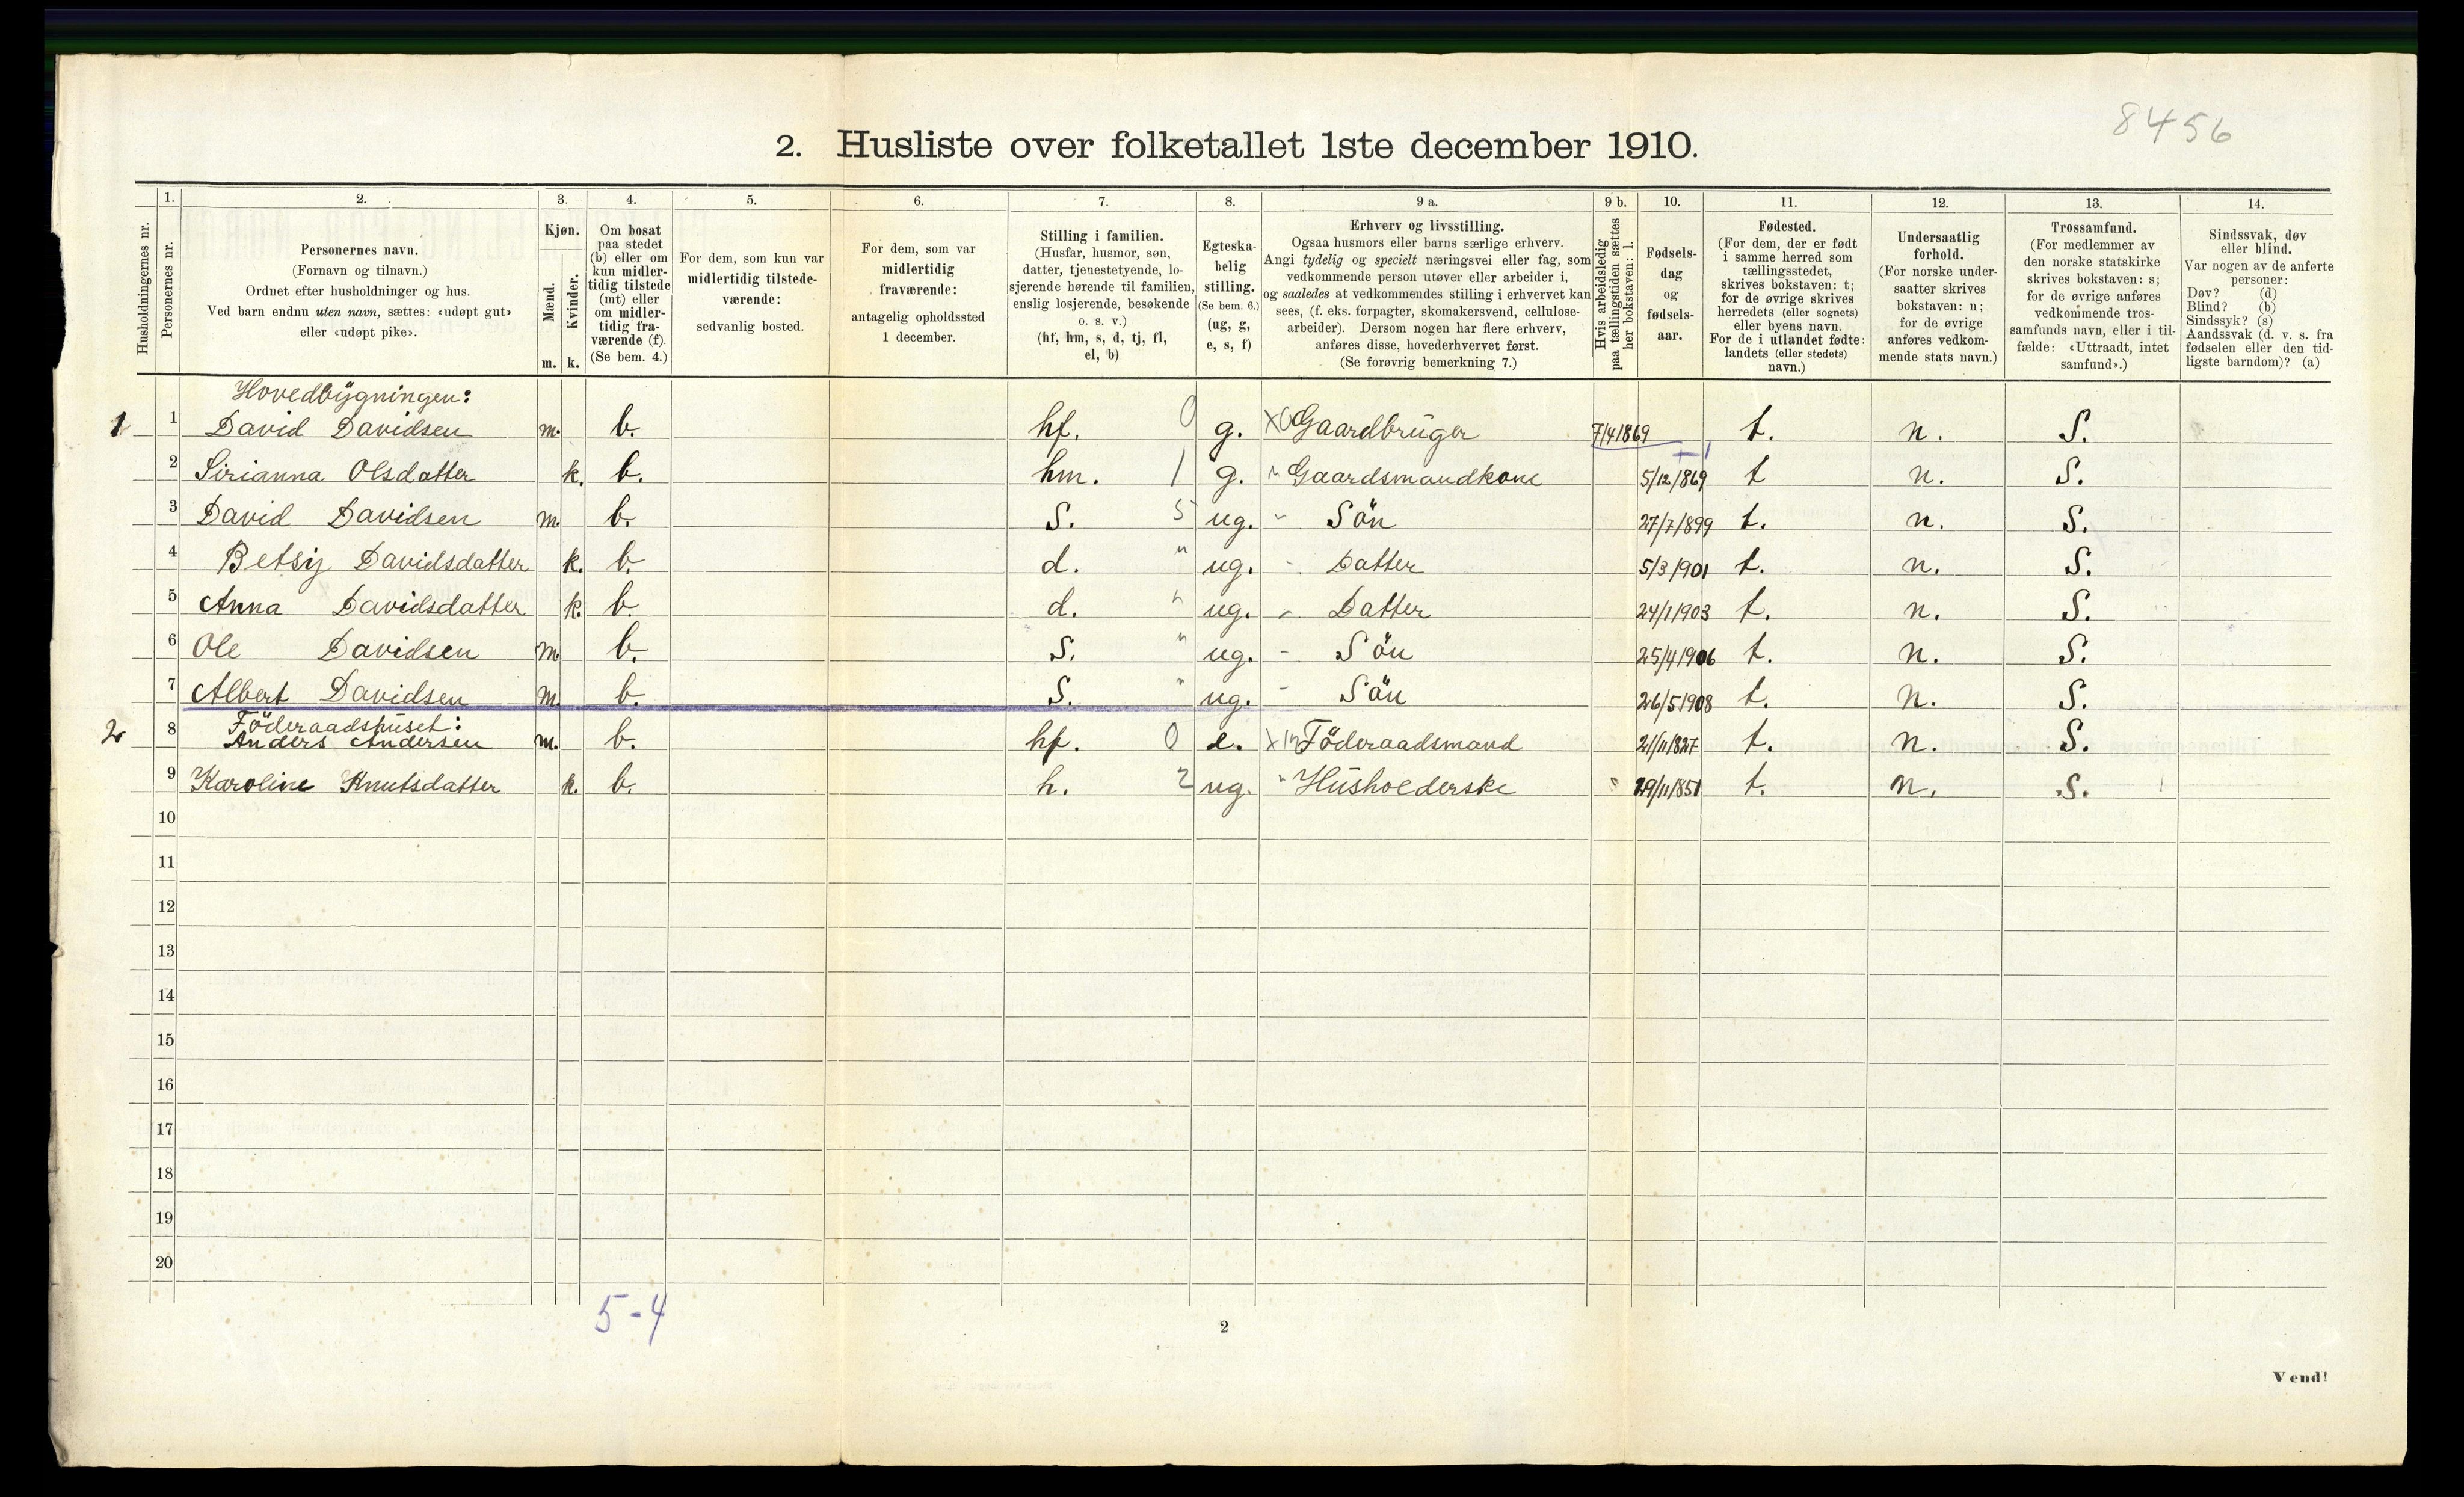 8456
2. Husliste over folketallet 1ste december 1910.
Husholdningernes nr.
1. Personernes nr.
2. Personernes navn. (Fornavn og tilnavn.) Ordnet efter husholdninger og hus. Ved barn endnu uten navn, sættes: «udøpt gut» eller «udøpt pike».
3. Kjøn. Mænd. m. Kvinder. k.
4. Om bosat paa stedet (b) eller om kun midlertidig tilstede (mt) eller om midlertidig fraværende (f). (Se bem. 4.)
5. For dem, som kun var midlertidig tilstedeværende: sedvanlig bosted.
6. For dem, som var midlertidig fraværende: antagelig opholdssted 1 december.
7. Stilling i familien. (Husfar, husmor, søn, datter, tjenestetyende, losjerende hørende til familien, enslig losjerende, besøkende o. s. v.) (hf, hm, s, d, tj, fl, el, b)
8. Egteskabelig stilling. (Se bem. 6.) (ug, g, e, s, f)
9 a. Erhverv og livsstilling. Ogsaa husmors eller barns særlige erhverv. Angi tydelig og specielt næringsvei eller fag, som vedkommende person utøver eller arbeider i, og saaledes at vedkommendes stilling i erhvervet kan sees, (f. eks. forpagter, skomakersvend, cellulosearbeider). Dersom nogen har flere erhverv, anføres disse, hovederhvervet først. (Se forøvrig bemerkning 7.)
9 b. Hvis arbeidsledig paa tællingstiden sættes her bokstaven: l.
10. Fødselsdag og fødselsaar.
11. Fødested. (For dem, der er født i samme herred som tællingsstedet, skrives bokstaven: t; for de øvrige skrives herredets (eller sognets) eller byens navn. For de i utlandet fødte: landets (eller stedets) navn.)
12. Undersaatlig forhold. (For norske undersaatter skrives bokstaven: n; for de øvrige anføres vedkommende stats navn.)
13. Trossamfund. (For medlemmer av den norske statskirke skrives bokstaven: s; for de øvrige anføres vedkommende trossamfunds navn, eller i tilfælde: «Uttraadt, intet samfund».)
14. Sindssvak, døv eller blind. Var nogen av de anførte personer: Døv? (d) Blind? (b) Sindssyk? (s) Aandssvak (d. v. s. fra fødselen eller den tidligste barndom)? (a)
Hovedbygningen:
1 1 David Davidsen m. b. hf. 0 g. X Gaardbruger 7/4 1869 t. n. S.
2 Sirianna Olsdatter k. b. hm. 1 g. " Gaardsmandkone 5/12/869 t n. S.
3 David Davidsen m. b. S. 5 ug. " Sön 27/7/899 t. n. S.
4 Betsy Davidsdatter k. b. d. " ug. - Datter 5/3/901 t. n. S.
5 Anna Davidsdatter k. b. d. " ug. - Datter 24/1/903 t. n. S.
6 Ole Davidsen m. b. S. " ug. - Sön 25/4/1906 t. n. S.
7 Albert Davidsen m. b. S. " ug. - Sön 26/5 1908 t. n. S.
Föderaadshuset:
2 8 Anders Andersen m. b. hf. 0 e. X Föderaadsmand 21/11/827 t. n. S.
9 Karoline Knutsdatter k. b. h. 2 ug. " Hushoederske 29/11/851 t. n. S.
10
11
12
13
14
15
16
17
18
19
20
5-4
2
Vend!